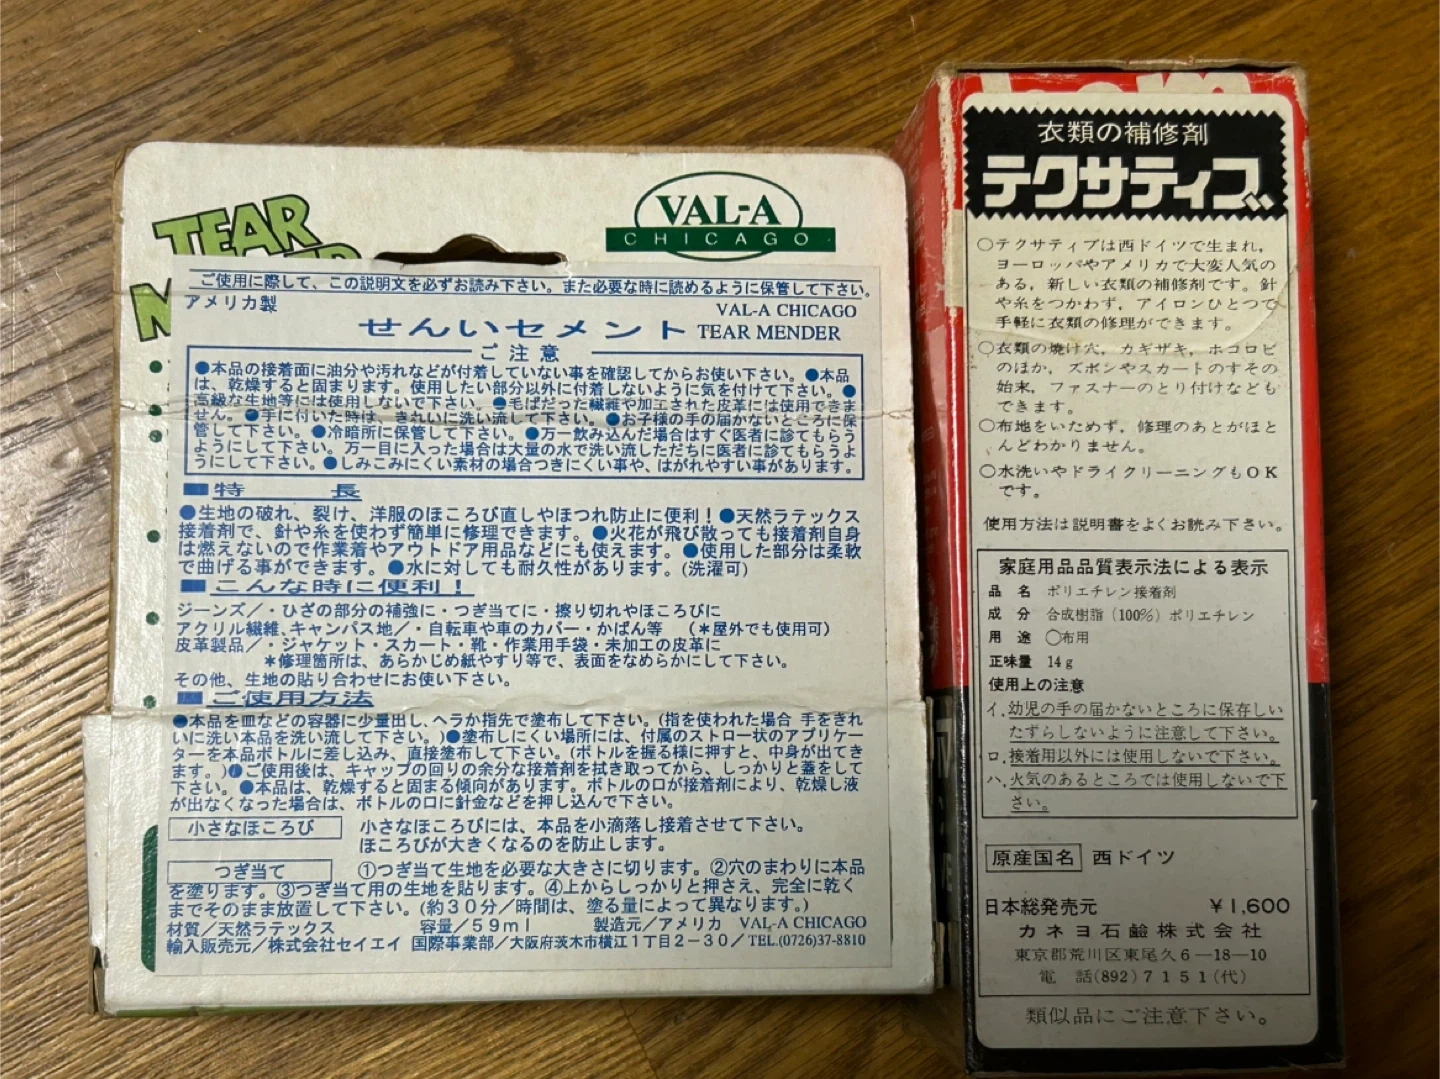 TEAR
VAL-A
CHICAGO
ご使用に際して、この説明文を必ずお読み下さい。また必要な時に読めるように保管して下さい。
アメリカ製
VAL-A CHICAGO
せんいセメント TEAR MENDER
ご注意
●本品の接着面に油分や汚れなどが付着していない事を確認してからお使い下さい。●本品
は、乾燥すると固まります。使用したい部分以外に付着しないように気を付けて下さい。●
高級な生地等には使用しないで下さい。●毛ばだった繊維や加工された皮革には使用できま
せん。●手に付いた時は、きれいに洗い流して下さい。●お子様の手の届かないところに保
管して下さい。●冷暗所に保管して下さい。●万一飲み込んだ場合はすぐ医者に診てもらう
ようにして下さい。万一目に入った場合は大量の水で洗い流しただちに医者に診てもらうよ
うにして下さい。●しみこみにくい素材の場合つきにくい事や、はがれやすい事があります。
■特長
●生地の破れ、裂け、洋服のほころび直しやほつれ防止に便利！●天然ラテックス
接着剤で、針や糸を使わず簡単に修理できます。●火花が飛び散っても接着剤自身
は燃えないので作業着やアウトドア用品などにも使えます。●使用した部分は柔軟
で曲げる事ができます。●水に対しても耐久性があります。(洗濯可)
■こんな時に便利！
ジーンズ／・ひざの部分の補強に・つぎ当てに・擦り切れやほころびに
アクリル繊維、キャンバス地／・自転車や車のカバー・かばん等　(＊屋外でも使用可)
皮革製品／・ジャケット・スカート・靴・作業用手袋・未加工の皮革に
＊修理箇所は、あらかじめ紙やすり等で、表面をなめらかにして下さい。
その他、生地の貼り合わせにお使い下さい。
■ご使用方法
●本品を皿などの容器に少量出し、ヘラか指先で塗布して下さい。(指を使われた場合 手をきれ
いに洗い本品を洗い流して下さい。)●塗布しにくい場所には、付属のストロー状のアプリケー
ターを本品ボトルに差し込み、直接塗布して下さい。(ボトルを握る様に押すと、中身が出てき
ます。)●ご使用後は、キャップの回りの余分な接着剤を拭き取ってから、しっかりと蓋をして
下さい。●本品は、乾燥すると固まる傾向があります。ボトルの口が接着剤により、乾燥し液
が出なくなった場合は、ボトルの口に針金などを押し込んで下さい。
小さなほころび　小さなほころびには、本品を小滴落し接着させて下さい。
ほころびが大きくなるのを防止します。
つぎ当て　①つぎ当て生地を必要な大きさに切ります。②穴のまわりに本品
を塗ります。③つぎ当て用の生地を貼ります。④上からしっかりと押さえ、完全に乾く
までそのまま放置して下さい。(約30分／時間は、塗る量によって異なります。)
材質／天然ラテックス　容量／59ml　製造元／アメリカ　VAL-A CHICAGO
輸入販売元／株式会社セイエイ 国際事業部／大阪府茨木市横江1丁目2－30／TEL.(0726)37-8810
衣類の補修剤
テクサティブ
○テクサティブは西ドイツで生まれ，
ヨーロッパやアメリカで大変人気の
ある，新しい衣類の補修剤です。針
や糸をつかわず，アイロンひとつで
手軽に衣類の修理ができます。
○衣類の焼け穴，カギザキ，ホコロビ
のほか，ズボンやスカートのすその
始末，ファスナーのとり付けなども
できます。
○布地をいためず，修理のあとがほと
んどわかりません。
○水洗いやドライクリーニングもOK
です。
使用方法は説明書をよくお読み下さい。
家庭用品品質表示法による表示
品名 ポリエチレン接着剤
成分 合成樹脂 (100%) ポリエチレン
用途 ○布用
正味量 14g
使用上の注意
イ.幼児の手の届かないところに保存しい
たずらしないように注意して下さい。
ロ.接着用以外には使用しないで下さい。
ハ.火気のあるところでは使用しないで下
さい。
原産国名 西ドイツ
日本総発売元 ￥1,600
カネヨ石鹼株式会社
東京都荒川区東尾久6―18―10
電話(892)7151(代)
類似品にご注意下さい。